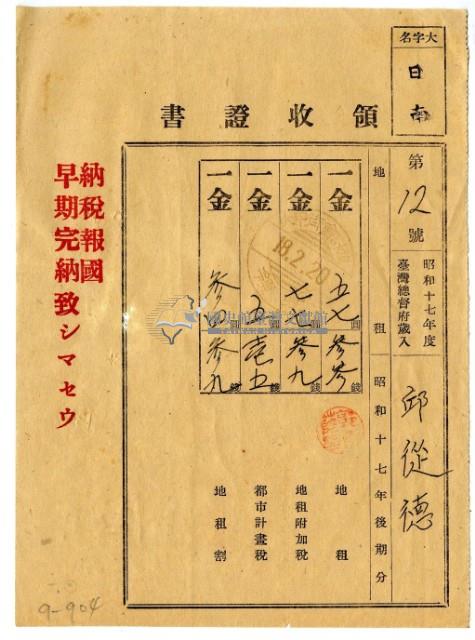 大字名
日南
領收證書
第12號
昭和十七年度
臺灣總督府歲入
邱從德
地租
昭和十七年後期分
一金 五七圓參參錢 地租
一金 七七圓參九錢 地租附加稅
一金 五圓壹五錢 都市計畫稅
一金 參四圓參九錢 地租割
18.2.20
納稅報國
早期完納致シマセウ
9-904